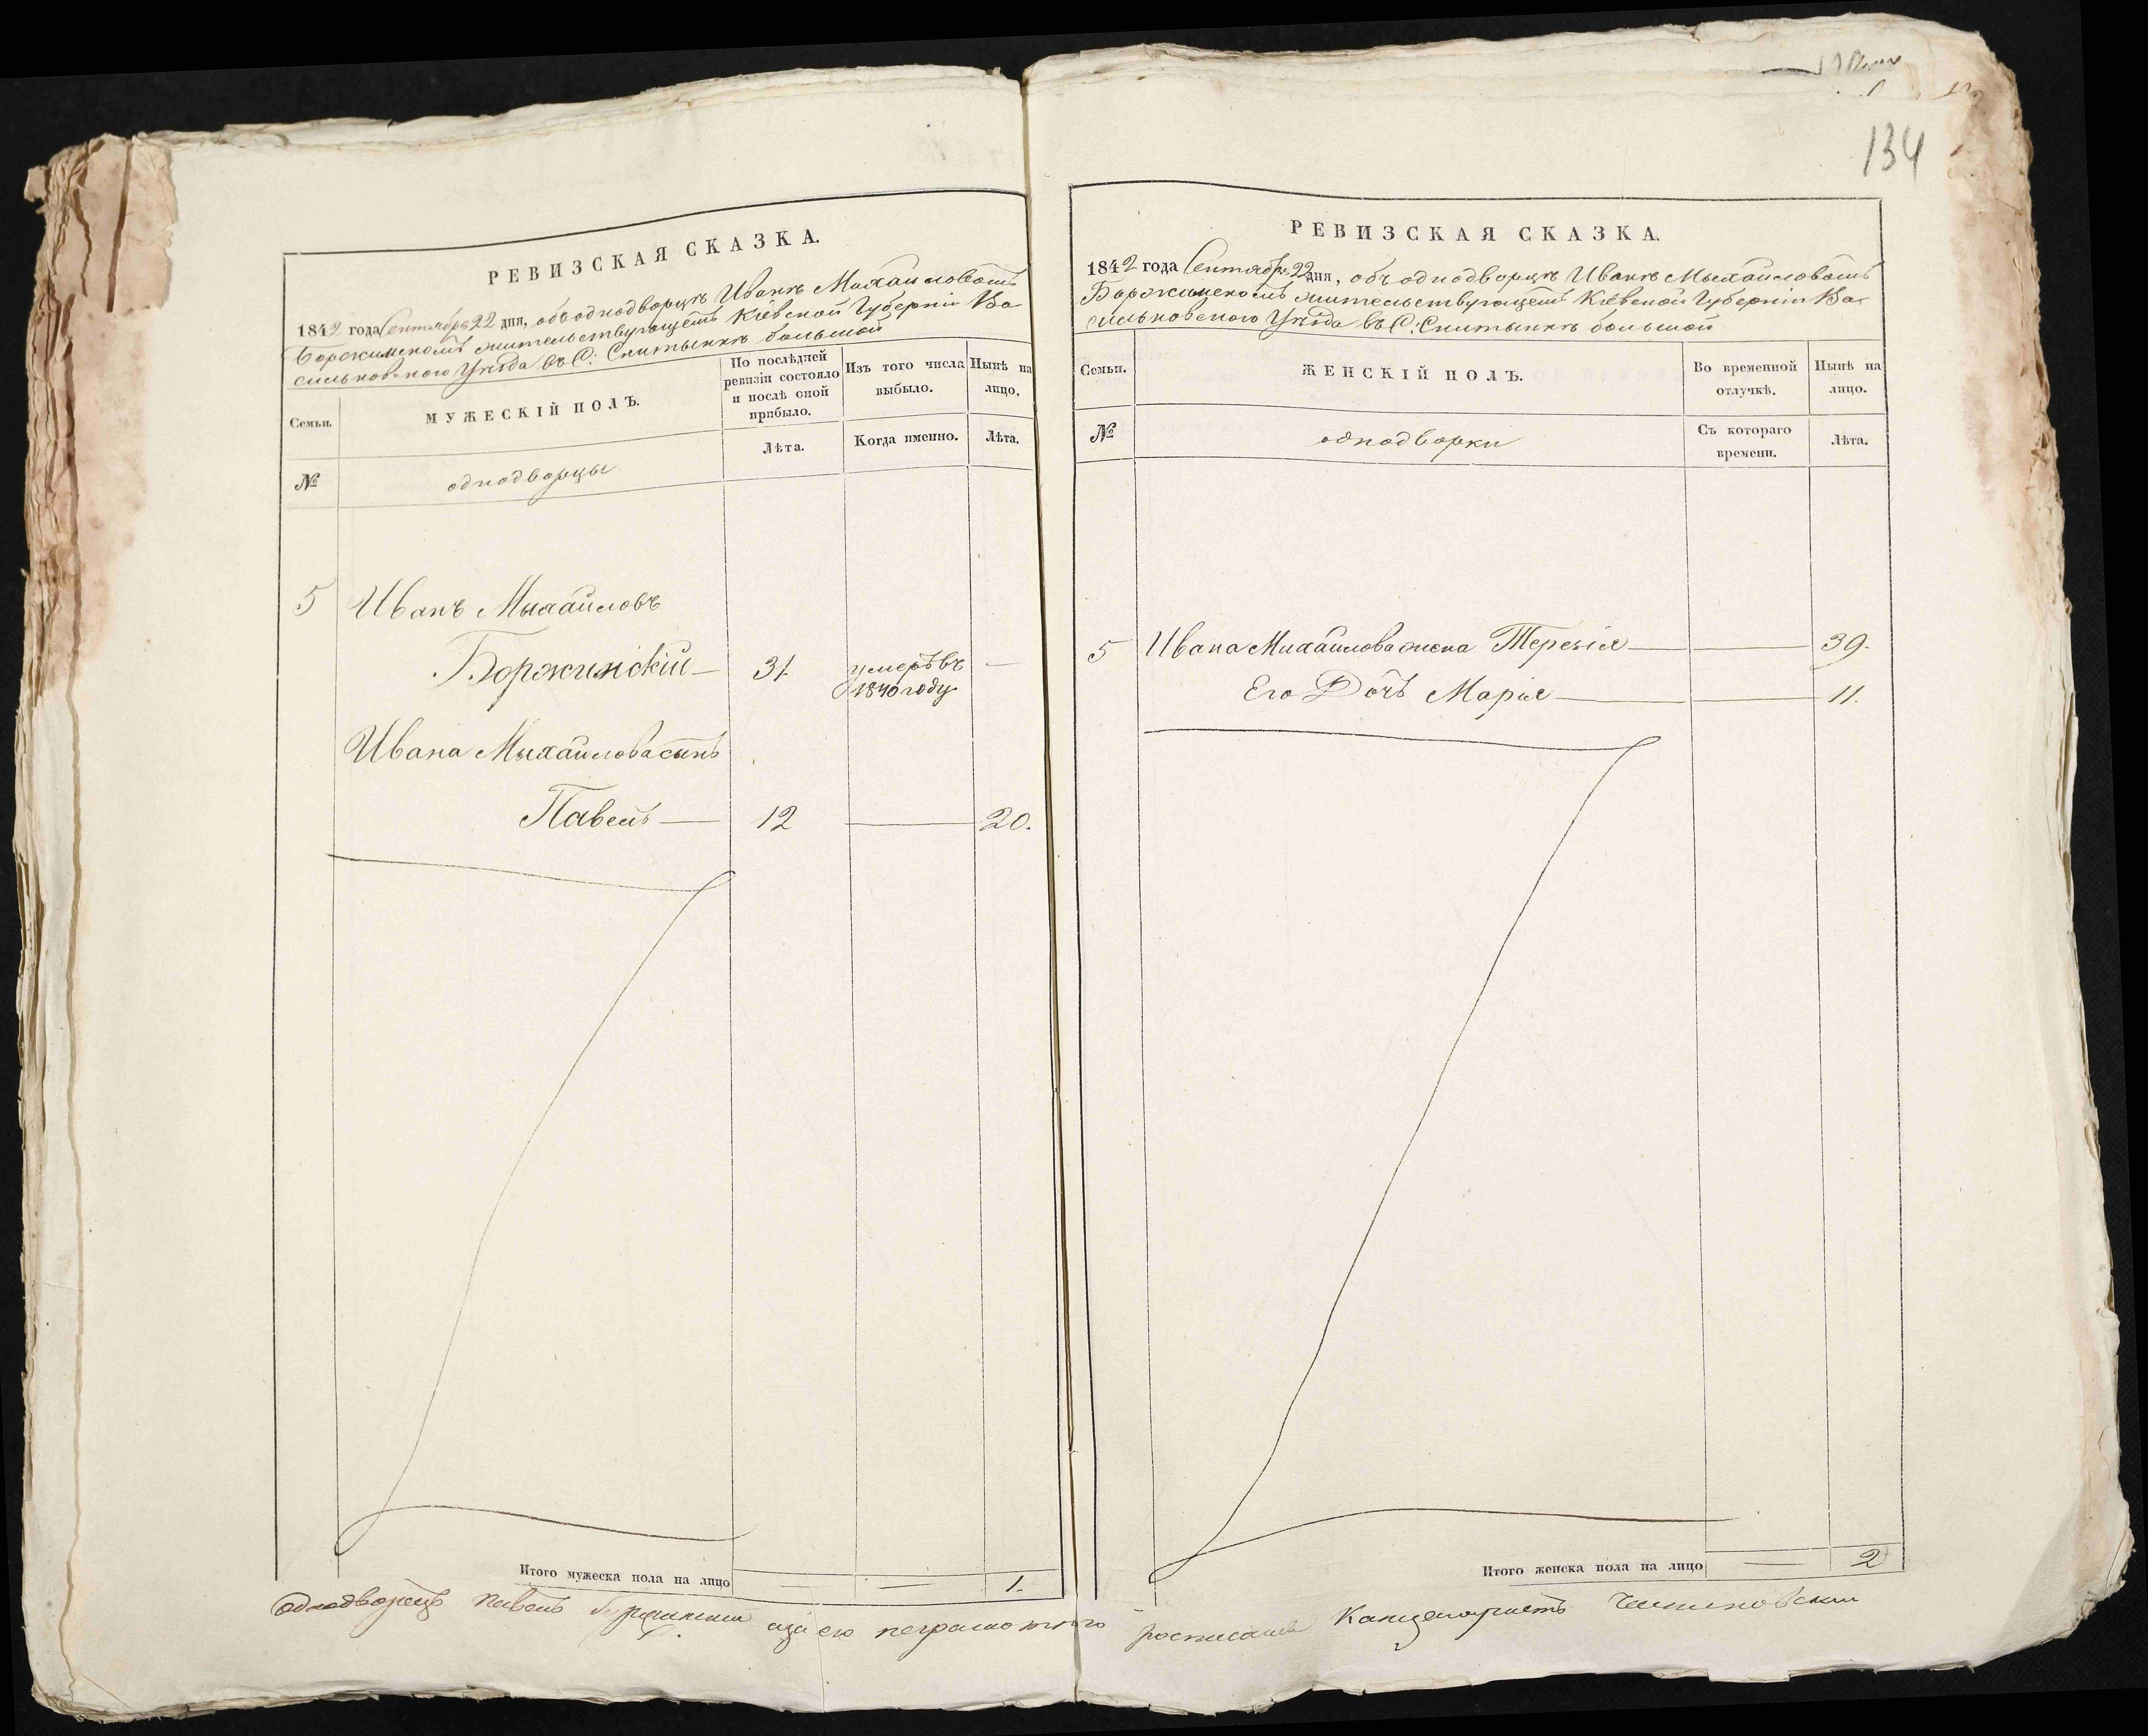 134
РЕВИЗСКАЯ СКАЗКА.
1842 года Сентября 22 дня, объ однодворцѣ Иванѣ Михайловомъ
Боржимскомъ жительствующемъ Кіевской Губерніи Ва-
сильковского Уѣзда въ С: Снитынкѣ большой
Семьи.
МУЖЕСКІЙ ПОЛЪ.
По послѣдней
ревизіи состояло
и послѣ оной
прибыло.
Изъ того числа
выбыло.
Нынѣ на
лицо.
№
однодворцы
Лѣта.
Когда именно.
Лѣта.
5 Иванъ Мыхайловъ
Боржинскій — 31 умеръ въ —
1840 году
Ивана Мыхайлова сынъ
Павелъ — 12 — 20.
Итого мужеска пола на лицо — — 1.
однодворецъ Павелъ
неграмотного
РЕВИЗСКАЯ СКАЗКА.
1842 года Сентября 22 дня, объ однодворцѣ Иванѣ Мыхайловомъ
Боржимскомъ жительствующемъ Кіевской Губерніи Ва-
сильковского Уѣзда въ С: Снитынкѣ большой
Семьи.
ЖЕНСКІЙ ПОЛЪ.
Во временной
отлучкѣ.
Нынѣ на
лицо.
№
однодворки
Съ котораго
времени.
Лѣта.
5 Ивана Михайлова жена Терезія — — 39.
Его Дочъ Марія — — 11.
Итого женска пола на лицо — 2
росписался Канцеляристъ